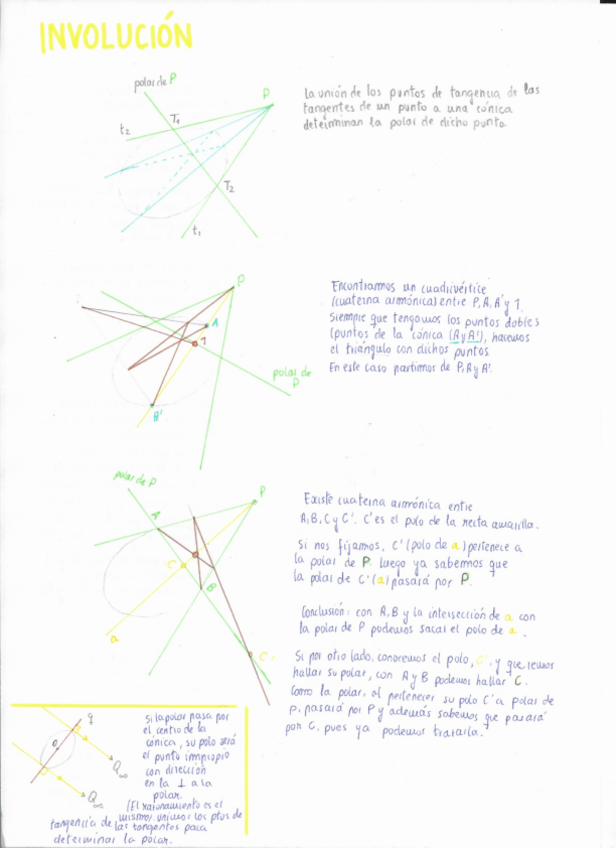 INVOLUCIÓN
polar de P
P
T1
t2
T2
t1
La unión de los puntos de tangencia de las
tangentes de un punto a una cónica
determinan la polar de dicho punto.
P
A
1
A'
polar de
P
Encontramos un cuadrivértice
(cuaterna armónica) entre P, A, A' y 1.
Siempre que tengamos los puntos dobles
(puntos de la cónica (A y A'), hacemos
el triángulo con dichos puntos.
En este caso partimos de P, A y A'.
polar de P
P
A
C
B
a
C'
Existe cuaterna armónica entre
A, B, C y C'. C' es el polo de la recta amarilla.
Si nos fijamos, C' (polo de a) pertenece a
la polar de P. Luego ya sabemos que
la polar de C' (a) pasará por P.
Conclusión: con A, B y la intersección de a con
la polar de P podemos sacar el polo de a.
Si por otro lado, conocemos el polo, C', y queremos
hallar su polar, con A y B podemos hallar C.
Como la polar, al pertenecer su polo C' a polar de
P, pasará por P y además sabemos que pasará
por C, pues ya podemos trazarla.
q
O
Q∞
Q∞
Si la polar pasa por
el centro de la
cónica, su polo será
el punto impropio
con dirección
en la ⊥ a la
polar.
(El razonamiento es el
mismo). Unimos los ptos de
tangencia de las tangentes para
determinar la polar.